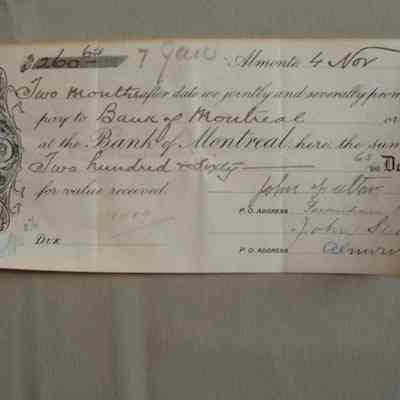 $260 65 7 Jan Almonte 4 Nov
Two months after date we jointly and severally prom
pay to Bank of Montreal or
at the Bank of Montreal, here, the sum
Two hundred & Sixty 65 Do
for value received. John
P. O. ADDRESS
John
DUE P. O. ADDRESS Almon